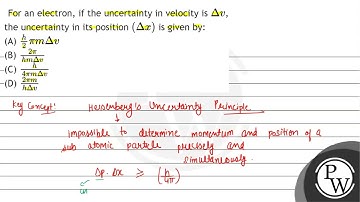 For an electron, if the uncertainty in velocity is Δv,
the uncertainty in its position (Δx) is given by:
(A) h/2 πmΔv
(B) 2π/hmΔv
(C) h/4πmΔv
(D) 2πm/hΔv
Key Concept: Heisenberg's Uncertainty Principle
↓
→ Impossible to determine momentum and position of a
sub atomic particle precisely and
simultaneously.
Δp. Δx ≥ (h/4π)
PW